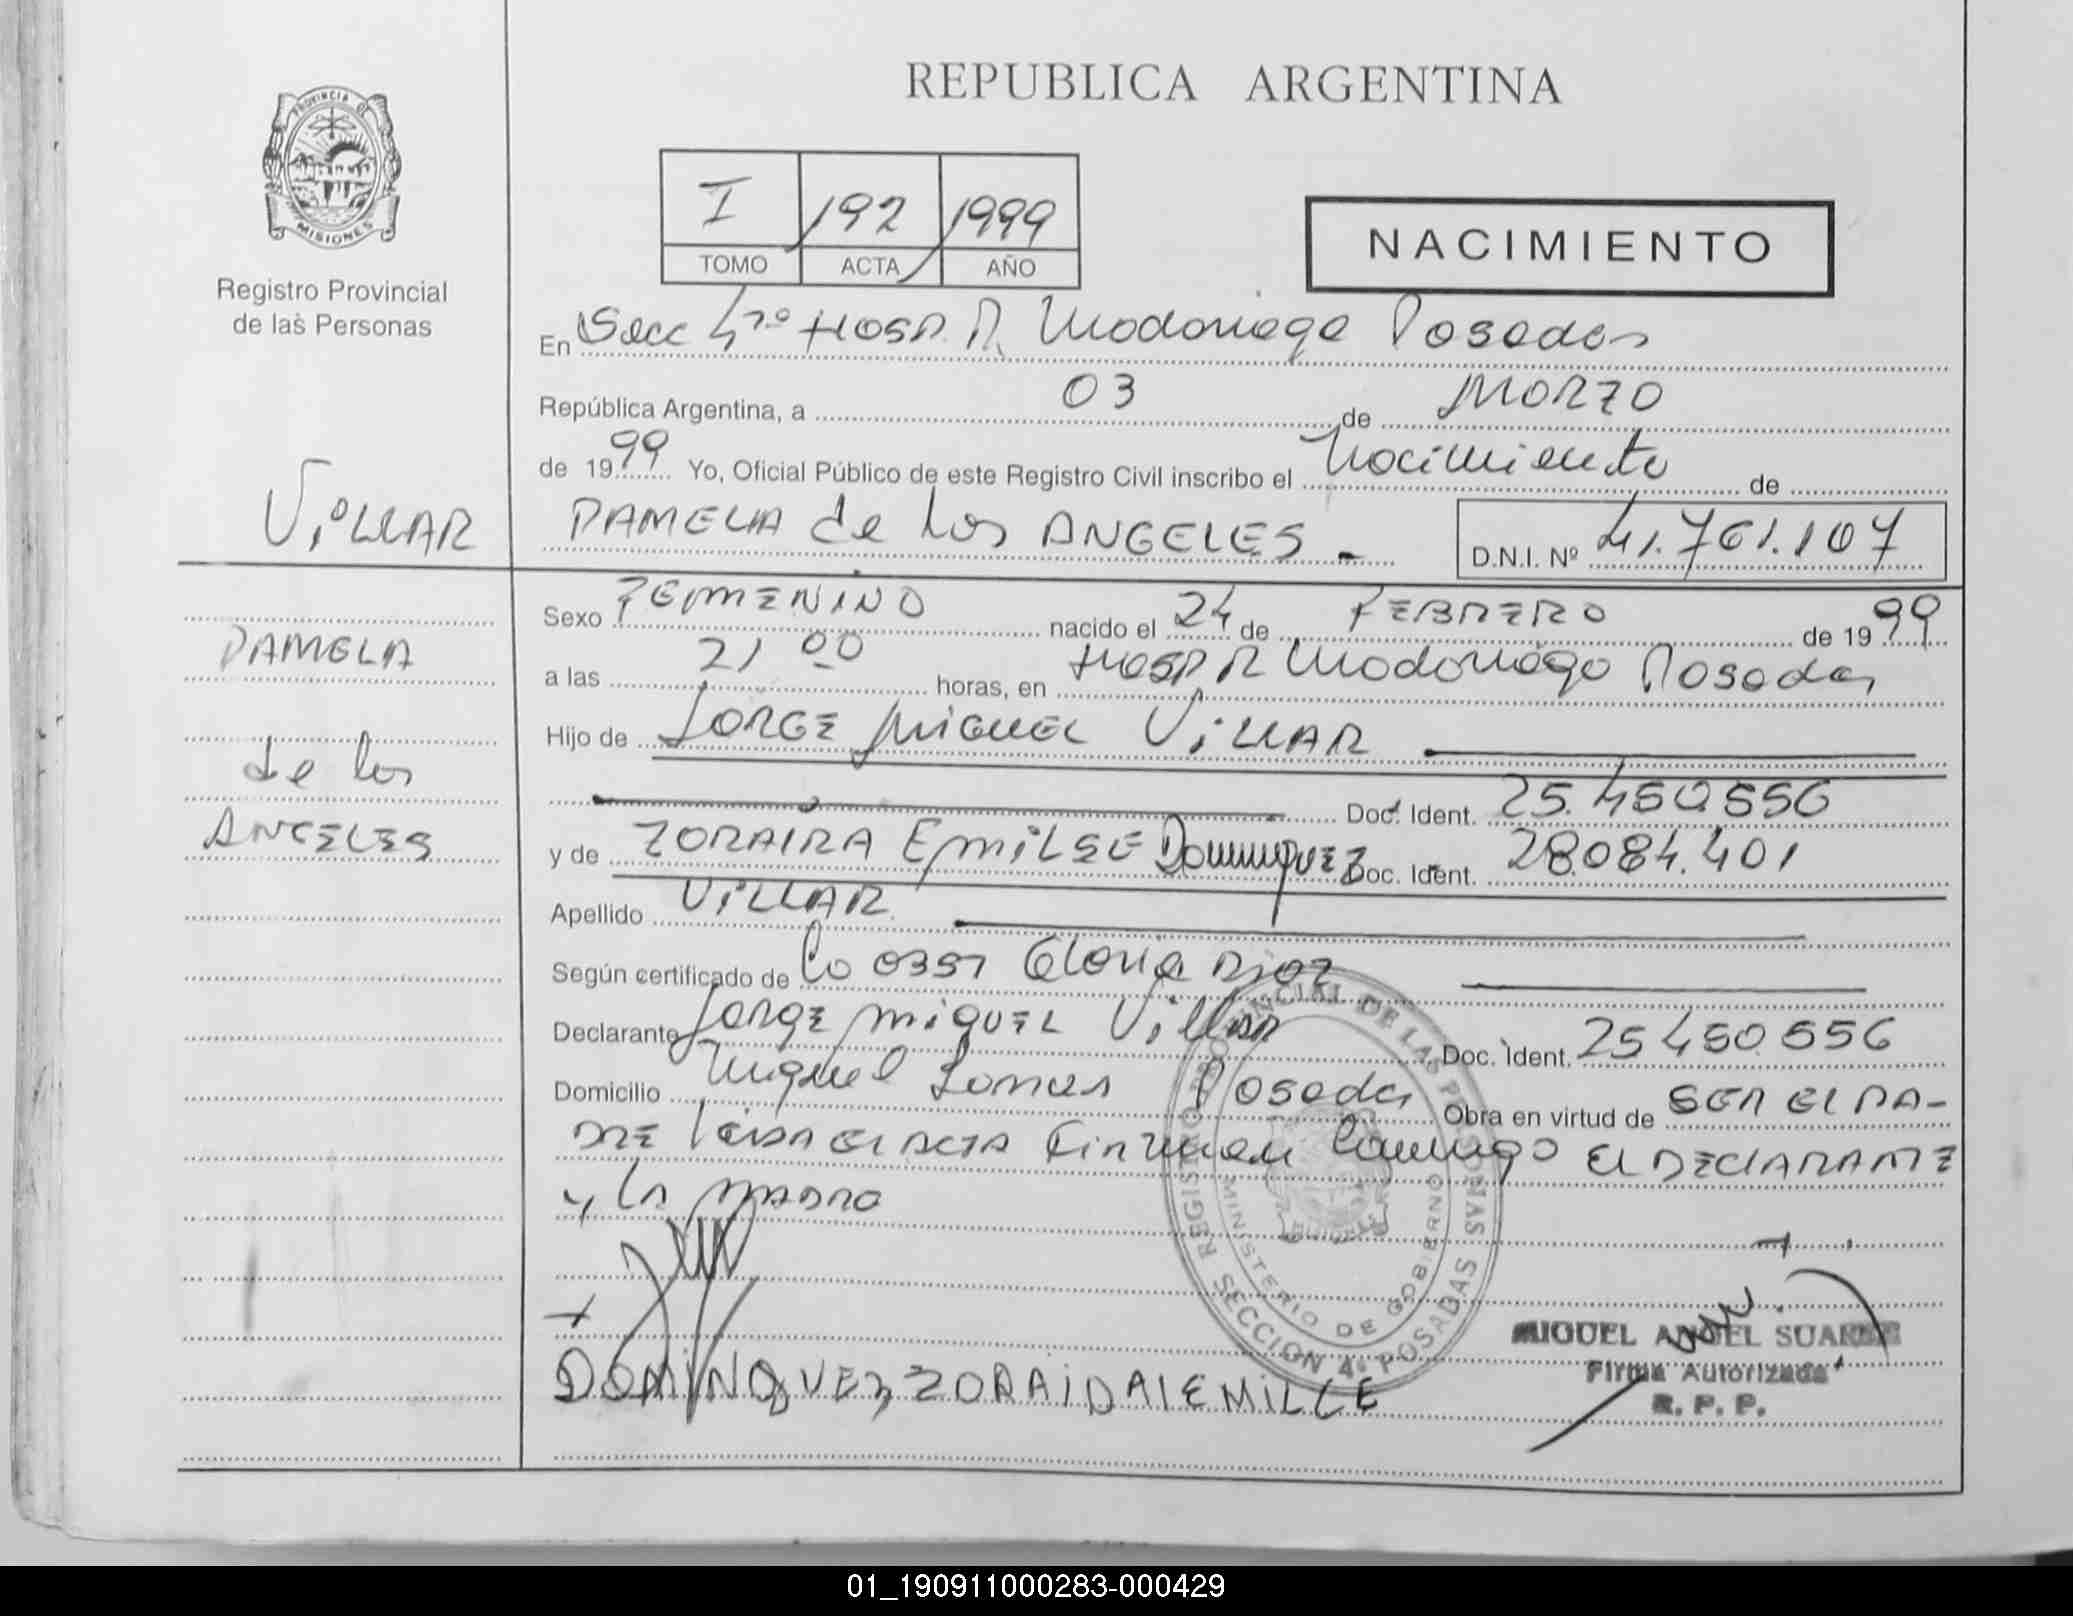 REPUBLICA ARGENTINA
PROVINCIA DE
MISIONES
Registro Provincial
de las Personas
I 192 1999
TOMO ACTA AÑO
NACIMIENTO
En Secc 4ta Hosp. R. Madariaga Posadas
República Argentina, a 03 de MARZO
de 1999 Yo, Oficial Público de este Registro Civil inscribo el Nacimiento de
VILLAR
PAMELA de los ANGELES.-
D.N.I. Nº 41.761.107
PAMELA
de los
ANGELES
Sexo FEMENINO nacido el 24 de FEBRERO de 1999
a las 21 00 horas, en HOSP R Madariaga Posadas
Hijo de JORGE MIGUEL VILLAR
Doc. Ident. 25.450.556
y de ZORAIRA EMILSE Dominguez Doc. Ident. 28.084.401
Apellido VILLAR
Según certificado de Gloria Dioz
Declarante Jorge Miguel Villar Doc. Ident. 25450.556
Domicilio Miguel Lanus Posadas Obra en virtud de SER EL PA-
DRE Leida el acta firman conmigo EL DECLARANTE
y la MADRE
REGISTRO PROVINCIAL DE LAS PERSONAS
MINISTERIO DE GOBIERNO
SECCION 4ª POSADAS
DOMINQUEZ ZORAIDA EMILCE
MIGUEL ANGEL SUAREZ
Firma Autorizada
R. P. P.
01_190911000283-000429